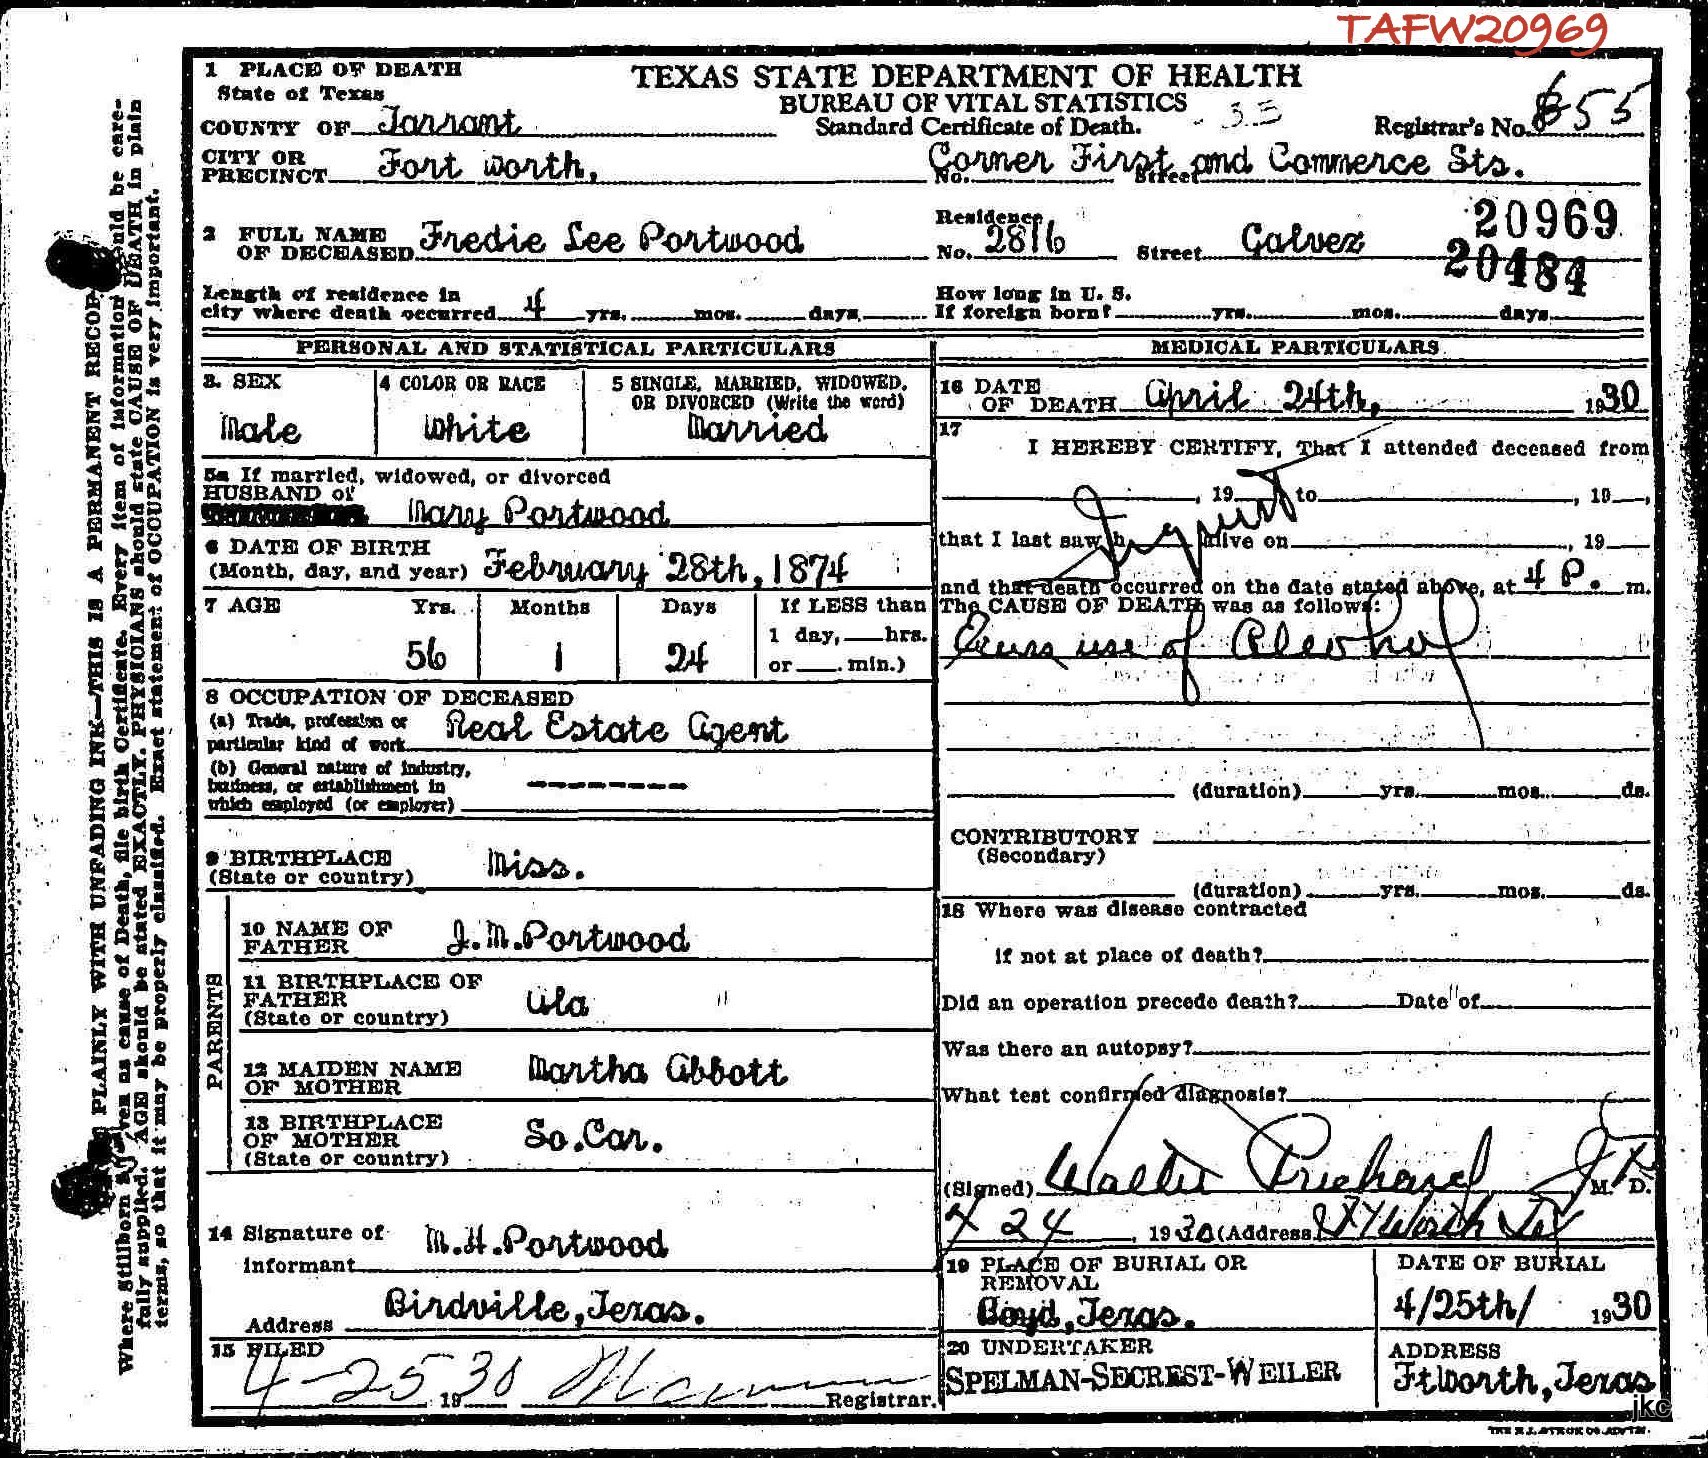 TAFW20969
1 PLACE OF DEATH
State of Texas
TEXAS STATE DEPARTMENT OF HEALTH
BUREAU OF VITAL STATISTICS
Standard Certificate of Death. - 33
COUNTY OF Tarrant
Registrar's No. 655
CITY OR PRECINCT Fort Worth,
No. Street Corner First and Commerce Sts.
20969
20484
2 FULL NAME OF DECEASED Fredie Lee Portwood
Residence No. 2816 Street Galvez
Length of residence in city where death occurred 4 yrs. mos. days
How long in U. S. If foreign born? yrs. mos. days
PERSONAL AND STATISTICAL PARTICULARS
3. SEX
Male
4 COLOR OR RACE
White
5 SINGLE, MARRIED, WIDOWED, OR DIVORCED (Write the word)
Married
5a If married, widowed, or divorced
HUSBAND of
Mary Portwood
6 DATE OF BIRTH
(Month, day, and year) February 28th, 1874
7 AGE Yrs. Months Days If LESS than
1 day, hrs.
56 1 24
or min.)
8 OCCUPATION OF DECEASED
(a) Trade, profession or
particular kind of work Real Estate Agent
(b) General nature of industry,
business, or establishment in
which employed (or employer)
9 BIRTHPLACE
(State or country) Miss.
PARENTS
10 NAME OF FATHER J.M.Portwood
11 BIRTHPLACE OF FATHER
(State or country) Ala
12 MAIDEN NAME OF MOTHER Martha Abbott
13 BIRTHPLACE OF MOTHER
(State or country) So.Car.
14 Signature of informant M.H.Portwood
Address Birdville, Texas.
15 FILED
4-25 1930 Registrar.
MEDICAL PARTICULARS
16 DATE OF DEATH April 24th, 1930
17
I HEREBY CERTIFY, That I attended deceased from
, 19 to , 19 ,
Inquest
that I last saw h alive on , 19
and that death occurred on the date stated above, at 4 P. m.
The CAUSE OF DEATH was as follows:
use of Alcohol
(duration) yrs. mos. ds.
CONTRIBUTORY
(Secondary)
(duration) yrs. mos. ds.
18 Where was disease contracted
if not at place of death?
Did an operation precede death? Date of
Was there an autopsy?
What test confirmed diagnosis?
(Signed) Walter Prichard M. D.
24, 1930 (Address) Ft Worth Tex
19 PLACE OF BURIAL OR REMOVAL
Boyd, Texas.
DATE OF BURIAL
4/25th/ 1930
20 UNDERTAKER
SPELMAN-SECREST-WEILER
ADDRESS
Ft Worth, Texas
jkc
PLAINLY WITH UNFADING INK—THIS IS A PERMANENT RECOR
Where Stillborn is given as cause of Death, file birth Certificate. Every item of information should be care-
fully supplied. AGE should be stated EXACTLY. PHYSICIANS should state CAUSE OF DEATH in plain
terms, so that it may be properly classified. Exact statement of OCCUPATION is very important.